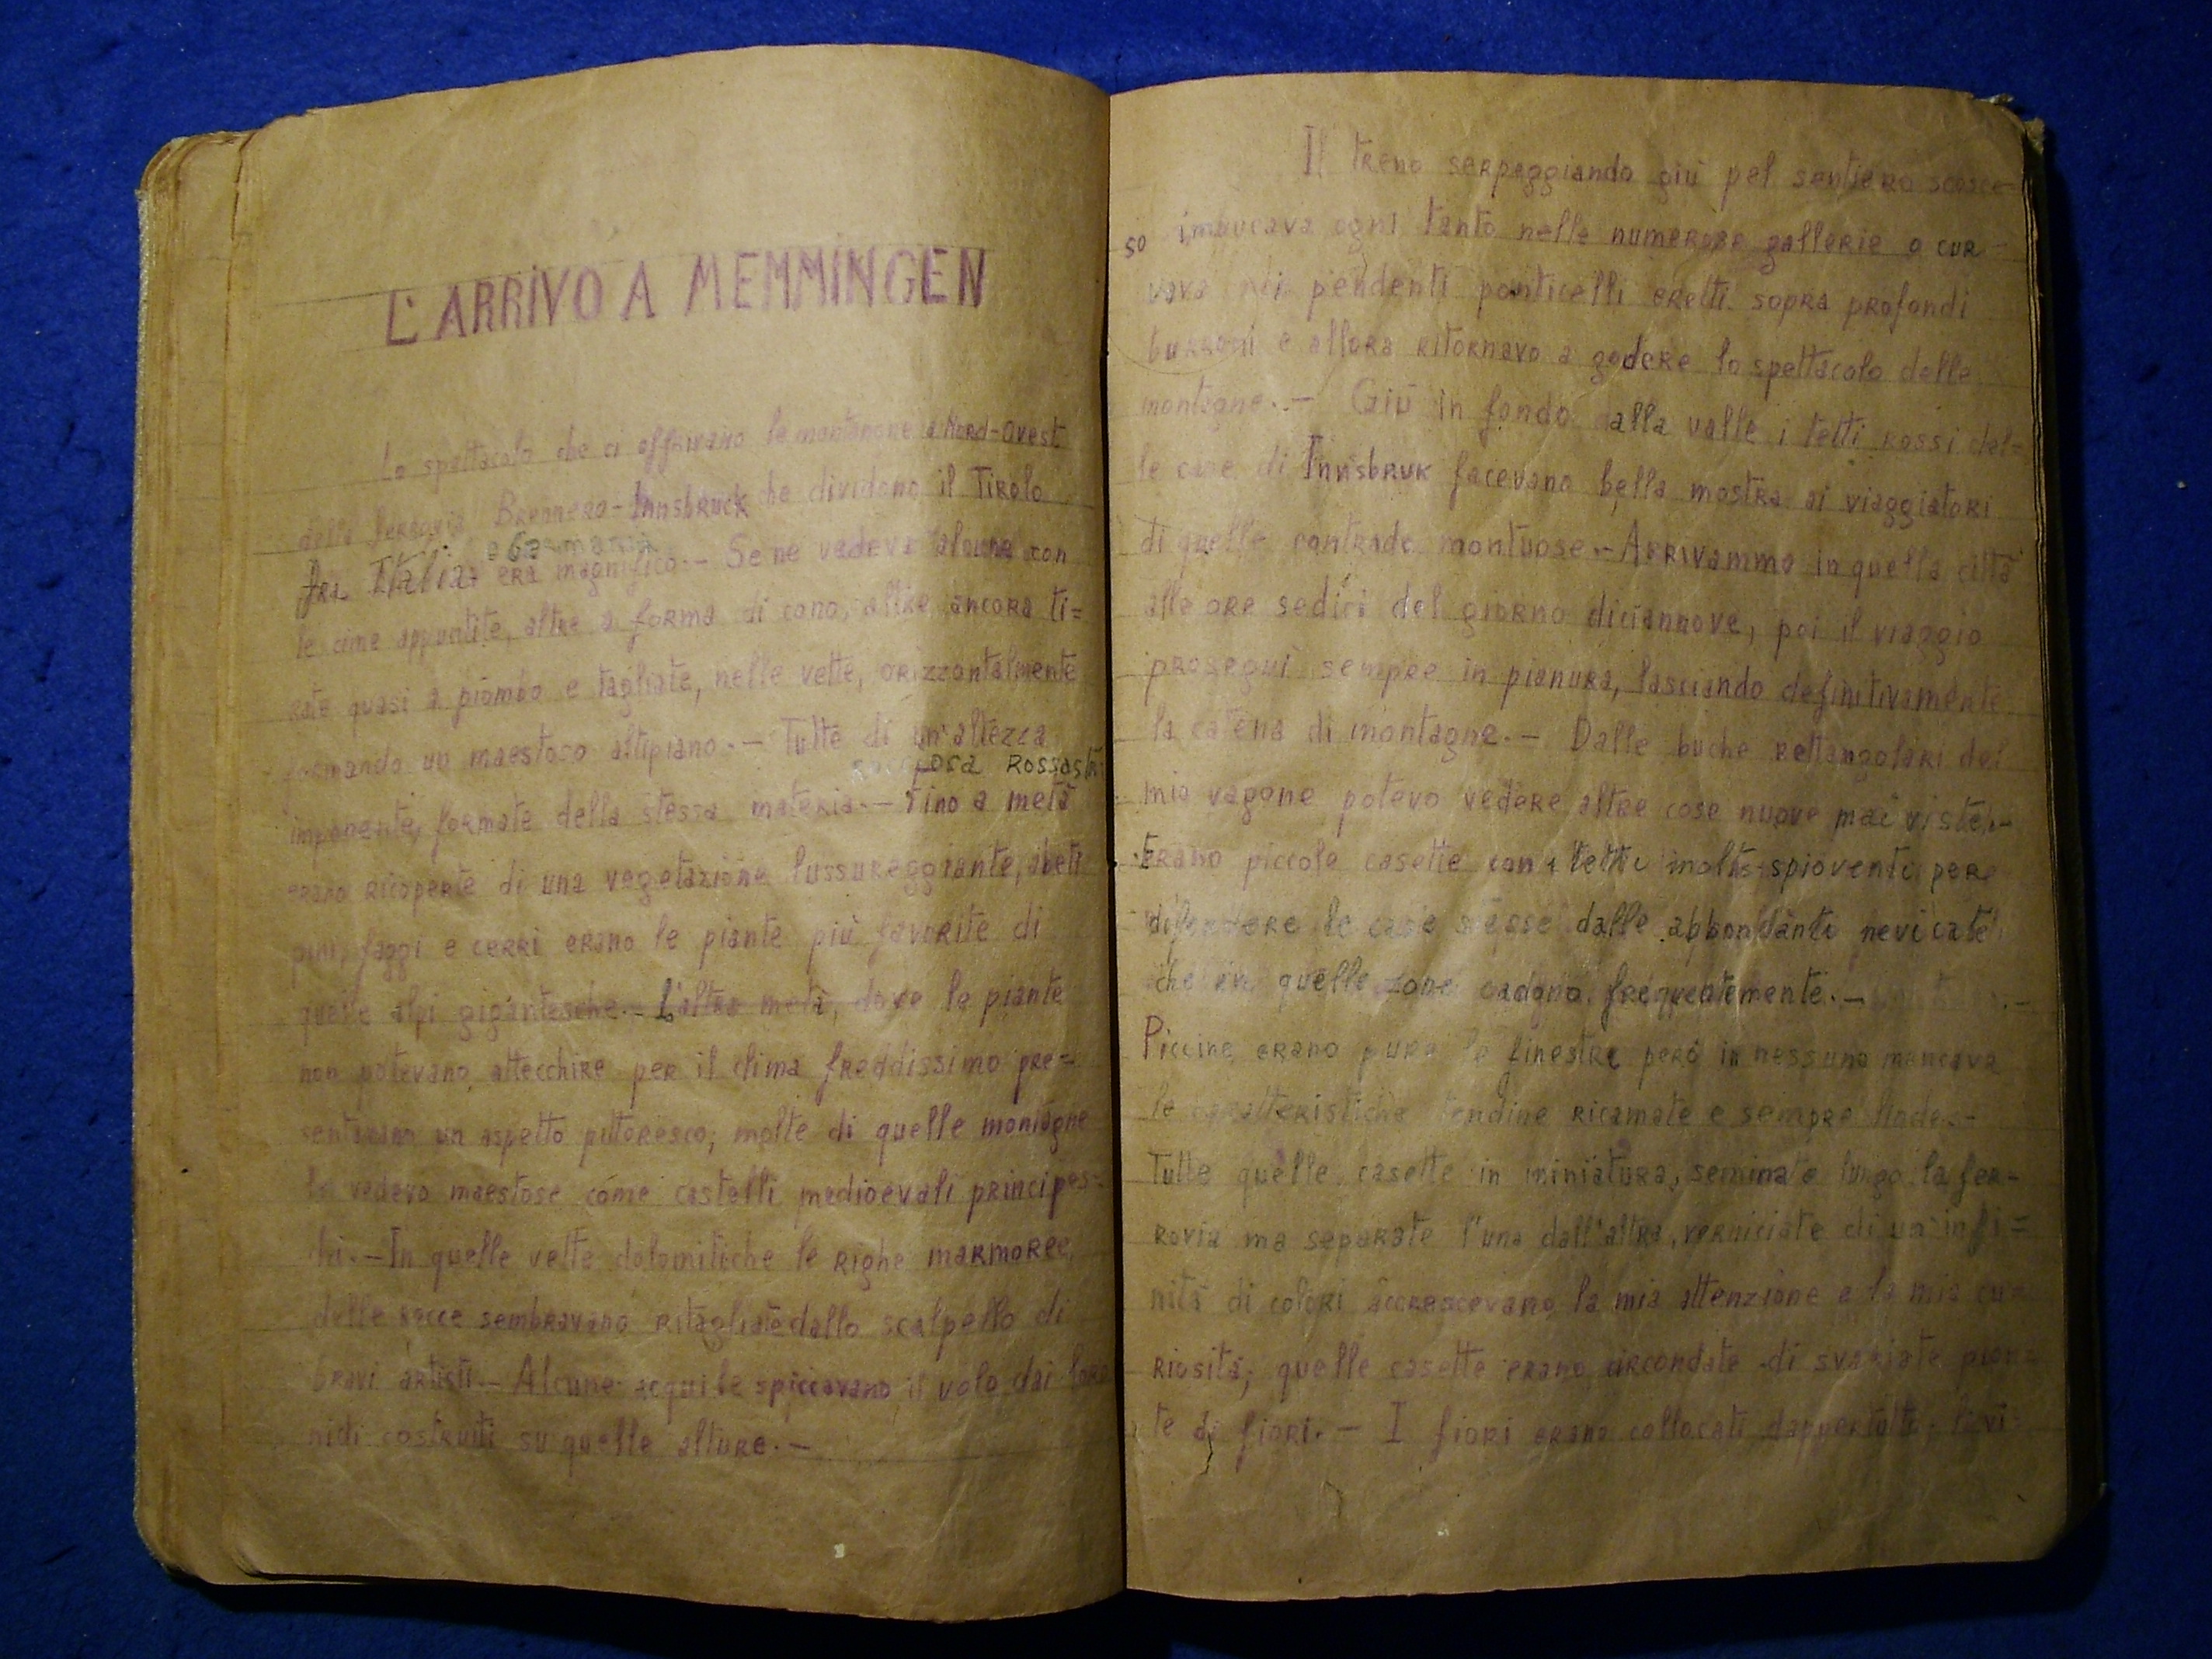 L'ARRIVO A MEMMINGEN
Lo spettacolo che ci offrivano le montagne a Nord-Ovest
della ferrovia Brennero-Innsbruck che dividono il Tirolo
e Germania
fra Italia era magnifico.- Se ne vedeva alcune con
le cime appuntite, altre a forma di cono, altre ancora ti=
rate quasi a piombo e tagliate, nelle vette, orizzontalmente
formando un maestoso altipiano.- Tutte di un'altezza
rocciosa rossastra
imponente, formate della stessa materia.- Fino a metà
erano ricoperte di una vegetazione lussureggiante, abeti
pini, faggi e cerri erano le piante più favorite di
quelle alpi gigantesche.- L'altra metà, dove le piante
non potevano attecchire per il clima freddissimo pre=
sentavano un aspetto pittoresco; molte di quelle montagne
le vedevo maestose come castelli medioevali principes=
chi.- In quelle vette dolomitiche le righe marmoree
delle rocce sembravano ritagliate dallo scalpello di
bravi artisti.- Alcune aquile spiccavano il volo dai loro
nidi costruiti su quelle alture.-
Il treno serpeggiando giù pel sentiero scosce=
so imbucava ogni tanto nelle numerose gallerie o cur-
vava nei pendenti ponticelli eretti sopra profondi
burroni e allora ritornavo a godere lo spettacolo delle
montagne.- Giù in fondo alla valle i tetti rossi del=
le case di Innsbruk facevano bella mostra ai viaggiatori
di quelle contrade montuose.- Arrivammo in quella città
alle ore sedici del giorno diciannove, poi il viaggio
proseguì sempre in pianura, lasciando definitivamente
la catena di montagne.- Dalle buche rettangolari del
mio vagone potevo vedere altre cose nuove mai viste.-
Erano piccole casette con i tetti molto spioventi per
difendere le case stesse dalle abbondanti nevicate
che in quelle zone cadono frequentemente.-
Piccine erano pure le finestre però in nessuna mancava
le caratteristiche tendine ricamate e sempre linde.-
Tutte quelle casette in miniatura, seminate lungo la fer-
rovia ma separate l'una dall'altra, verniciate di un'infi=
nità di colori accrescevano la mia attenzione e la mia cu
riosità; quelle casette erano circondate di svariate pian=
te di fiori.- I fiori erano collocati dappertutto, li vi